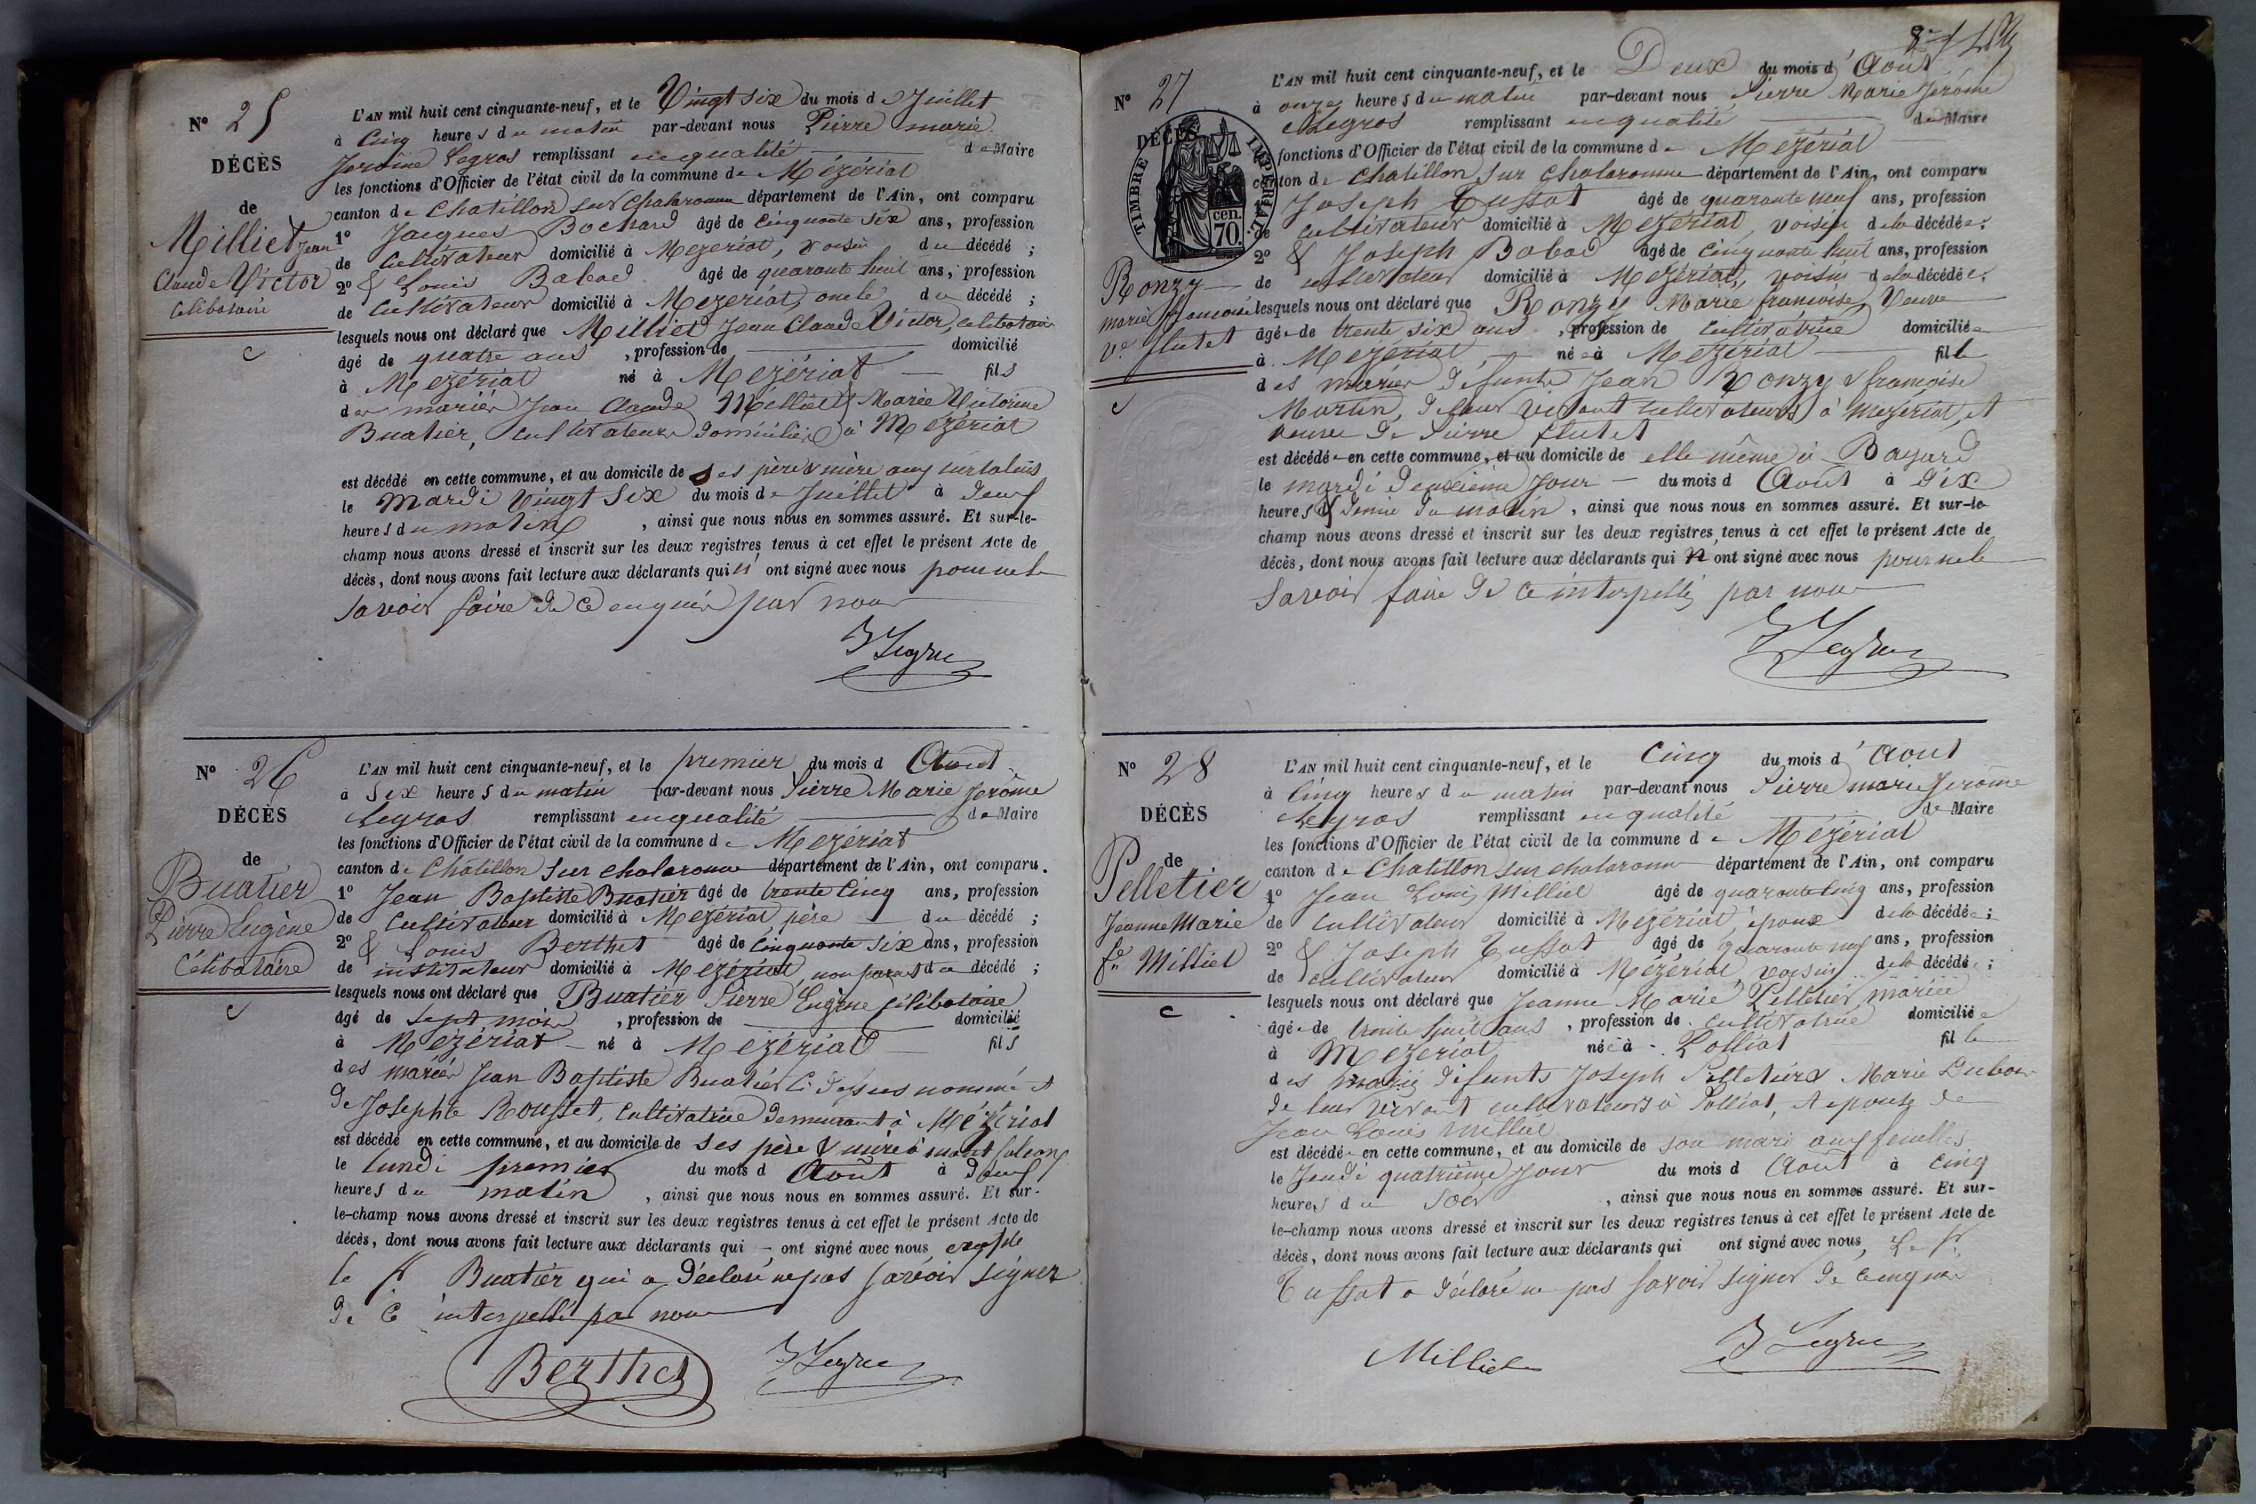 N° 25
DÉCÈS
de
Milliet Jean
Claude Victor
celibataire
L'AN mil huit cent cinquante-neuf, et le Vingt six du mois de Juillet
à Cinq heures du matin par-devant nous Pierre marie
Jerome Legros remplissant en qualité de Maire
les fonctions d'Officier de l'état civil de la commune de Mézériat
canton de Chatillon sur Chalaronne département de l'Ain, ont comparu
1° Jacques Bochard âgé de Cinquante Six ans, profession
de Cultivateur domicilié à Mezeriat, voisin du décédé ;
2° & Louis Babad âgé de quarante huit ans, profession
de Cultivateur domicilié à Mezeriat, oncle du décédé ;
lesquels nous ont déclaré que Milliet Jean Claude Victor, celibataire
âgé de quatre ans , profession de domicilié
à Mezériat né à Mezériat fils
des mariés Jean Claude Milliet & Marie Victorine
Buatier, Cultivateurs domiciliés à Mezériat
est décédé en cette commune, et au domicile de ses père & mère aux
le Mardi Vingt Six du mois de Juillet à deux
heures du matin , ainsi que nous nous en sommes assuré. Et sur-le-
champ nous avons dressé et inscrit sur les deux registres tenus à cet effet le présent Acte de
décès, dont nous avons fait lecture aux déclarants qui n' ont signé avec nous pour ne le
savoir faire de ce enquis par nous
J Legros
N° 26
DÉCÈS
de
Buatier
Pierre Eugène
Célibataire
L'AN mil huit cent cinquante-neuf, et le premier du mois d Aout
à Six heures du matin par-devant nous Pierre Marie Jerôme
Legros remplissant en qualité de Maire
les fonctions d'Officier de l'état civil de la commune de Mezériat
canton de Châtillon sur chalaronne département de l'Ain, ont comparu.
1° Jean Baptiste Buatier âgé de trente Cinq ans, profession
de Cultivateur domicilié à Mezériat père du décédé ;
2° & Louis Berthet âgé de Cinquante six ans, profession
de instituteur domicilié à Mezériat, non parent du décédé ;
lesquels nous ont déclaré que Buatier Pierre Eugène célibataire
âgé de sept mois , profession de domicilié
à Mezériat né à Mezériat fils
des mariés Jean Baptiste Buatier Ci dessus nommé et
de Josephte Rousset, Cultivatrice demeurant à Mézériat
est décédé en cette commune, et au domicile de ses père & mère à
le lundi premier du mois d Août à deux
heures du matin , ainsi que nous nous en sommes assuré. Et sur-
le-champ nous avons dressé et inscrit sur les deux registres tenus à cet effet le présent Acte de
décès, dont nous avons fait lecture aux déclarants qui ont signé avec nous excepté
le Sr Buatier qui a déclaré ne pas savoir signer
de ce interpellé par nous
Berthet J Legros
N° 27
DÉCÈS
de
TIMBRE IMPÉRIAL
70 cen.
Ronzy
marie françoise
ve flutet
L'AN mil huit cent cinquante-neuf, et le Deux du mois d'Août
à onze heures du matin par-devant nous Pierre Marie Jérôme
Legros remplissant en qualité de Maire
les fonctions d'Officier de l'état civil de la commune de Mezériat
canton de Chatillon sur Chalaronne département de l'Ain, ont comparu
1° Joseph Tussot âgé de quarante neuf ans, profession
de cultivateur domicilié à Mezériat, voisin de la décédée ;
2° & Joseph Babad âgé de Cinquante huit ans, profession
de cultivateur domicilié à Mezériat, voisin de la décédée ;
lesquels nous ont déclaré que Ronzy Marie françoise, Veuve
âgée de trente six ans , profession de cultivatrice domiciliée
à Mezériat née à Mezériat fille
des mariés défunts Jean Ronzy & françoise
Martin, de leur vivant cultivateurs à Mezériat, et
veuve de Pierre flutet
est décédée en cette commune, et au domicile de elle même à Bayard
le mardi deuxième jour du mois d Août à Dix
heures & demie du matin , ainsi que nous nous en sommes assuré. Et sur-le-
champ nous avons dressé et inscrit sur les deux registres tenus à cet effet le présent Acte de
décès, dont nous avons fait lecture aux déclarants qui n' ont signé avec nous pour ne le
savoir faire de ce interpellés par nous
J Legros
N° 28
DÉCÈS
de
Pelletier
Jeanne Marie
fe Milliet
L'AN mil huit cent cinquante-neuf, et le Cinq du mois d'Aout
à Cinq heures du matin par-devant nous Pierre marie Jerome
Legros remplissant en qualité de Maire
les fonctions d'Officier de l'état civil de la commune de Mézériat
canton de Chatillon sur chalaronne département de l'Ain, ont comparu
1° Jean Louis Milliet âgé de quarante cinq ans, profession
de Cultivateur domicilié à Mezériat, epoux de la décédée ;
2° & Joseph Tussot âgé de quarante neuf ans, profession
de cultivateur domicilié à Mézériat, voisin de la décédée ;
lesquels nous ont déclaré que Jeanne Marie Pelletier, mariée
âgée de trente huit ans , profession de cultivatrice domiciliée
à Mezeriat née à Polliat fille
des mariés défunts Joseph Pelletier & Marie Dubois
de leur vivant cultivateurs à Polliat, et epouse de
Jean Louis Milliet
est décédée en cette commune, et au domicile de son mari aux feuilles
le Jeudi quatrième jour du mois d Août à cinq
heures du soir , ainsi que nous nous en sommes assuré. Et sur-
le-champ nous avons dressé et inscrit sur les deux registres tenus à cet effet le présent Acte de
décès, dont nous avons fait lecture aux déclarants qui ont signé avec nous, Le Sr
Tussot a déclaré ne pas savoir signer de ce enquis
Milliet J Legros